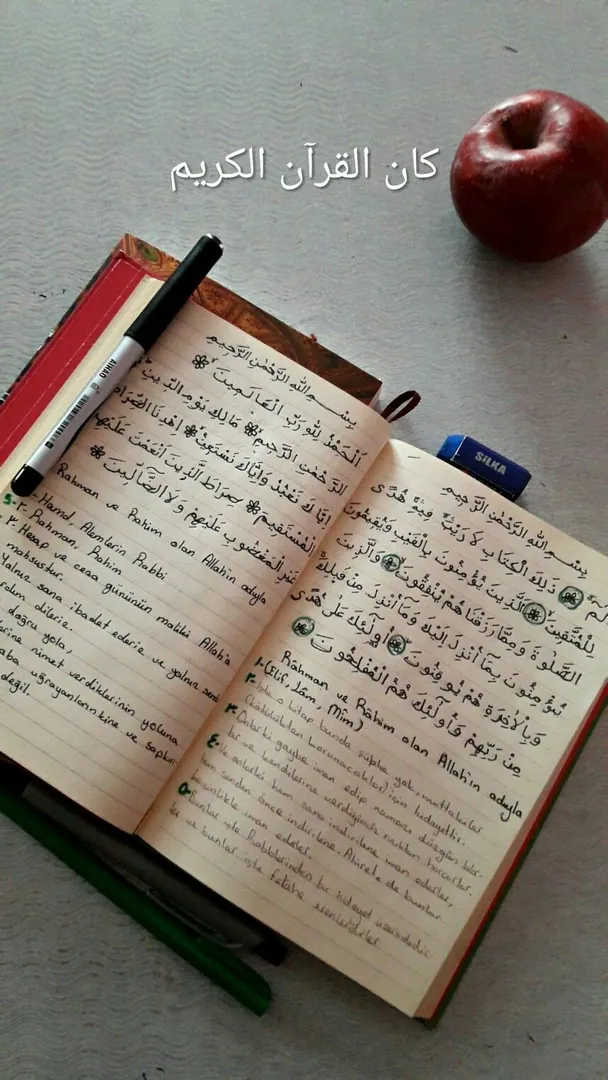 كان القرآن الكريم
بِسْــمِ اللهِ الرَّحْمٰنِ الرَّحِيمِ
اَلْحَمْدُ لِلّٰهِ رَبِّ الْعَالَمِينَ
الرَّحْمٰنِ الرَّحِيمِ مَالِكِ يَوْمِ الدِّينِ
اِيَّاكَ نَعْبُدُ وَاِيَّاكَ نَسْتَعِينُ اِهْدِنَا الصِّرَاطَ
الْمُسْتَقِيمَ صِرَاطَ الَّذِينَ اَنْعَمْتَ عَلَيْهِمْ
غَيْرِ الْمَغْضُوبِ عَلَيْهِمْ وَلَا الضَّالِّينَ
Rahman ve Rahim olan Allah'ın adıyla
-Hamd, Alemlerin Rabbi
٢- Rahman, Rahim
٣. Hesap ve ceza gününün maliki Allah'a
mahsustur.
Yalnız sana ibadet ederiz ve yalnız senden
rdım dileriz.
doğru yola,
erine nimet verdiklerinin yoluna
aba uğrayanlarınkine ve sapkın
değil.
AIHAO
SiLKA
بِسْــمِ اللهِ الرَّحْمٰنِ الرَّحِيمِ
الٓمٓ ذٰلِكَ الْكِتَابُ لَا رَيْبَ فِيهِ هُدًى
لِلْمُتَّقِينَ اَلَّذِينَ يُؤْمِنُونَ بِالْغَيْبِ وَيُقِيمُونَ
الصَّلٰوةَ وَمِمَّا رَزَقْنَاهُمْ يُنْفِقُونَ وَالَّذِينَ
يُؤْمِنُونَ بِمَا اُنْزِلَ اِلَيْكَ وَمَا اُنْزِلَ مِنْ قَبْلِكَ
وَبِالْاٰخِرَةِ هُمْ يُوقِنُونَ اُولٰئِكَ عَلٰى هُدًى
مِنْ رَبِّهِمْ وَاُولٰئِكَ هُمُ الْمُفْلِحُونَ
Rahman ve Rahim olan Allah'ın adıyla
١-(Elif, Lâm, Mim)
٢. İşte o kitap bunda şüphe yok, muttakiler
(kötülükten korunacaklar) için hidayettir.
٣. Onlar ki gaybe iman edip namazı düzgün kılar
lar ve kendilerine verdiğimiz rızıktan harcarlar.
٤. Ve onlar ki hem sana indirilene iman ederler,
hem senden önce indirilene. Ahirete de bunlar
kesinlikle iman ederler.
٥. Bunlar işte Rablerinden bir hidayet üzeredirler
ve bunlar işte felaha erenlerdirler